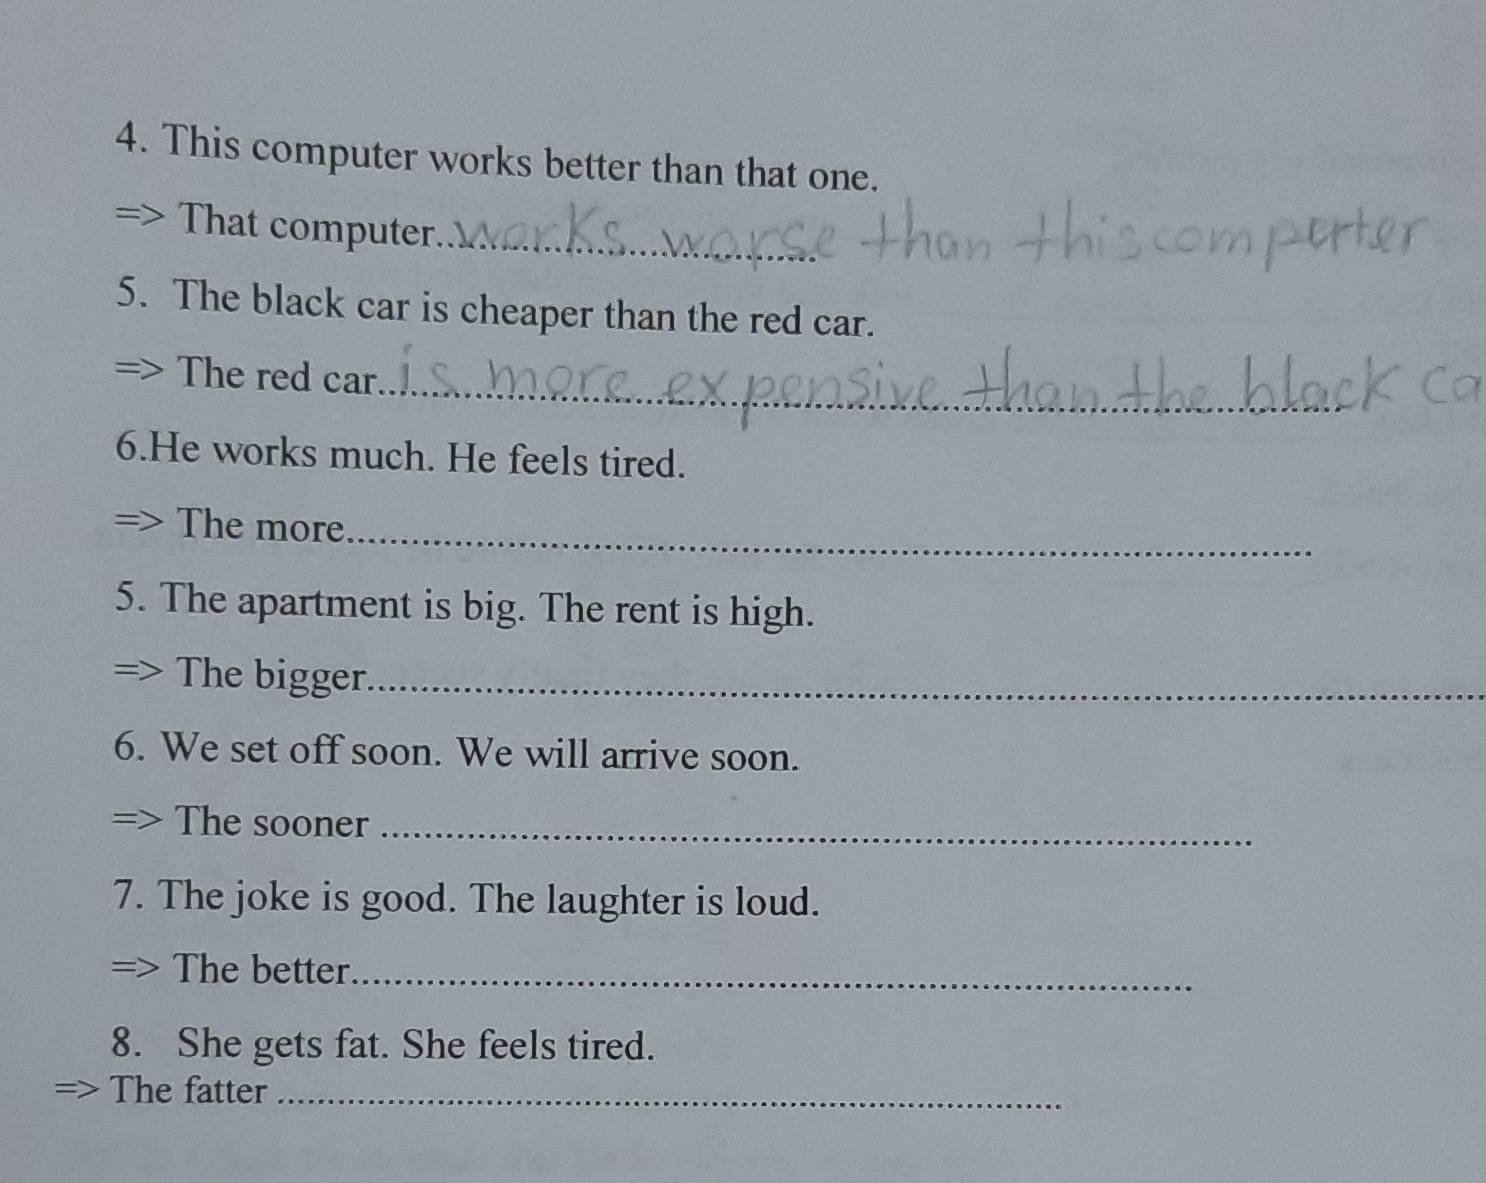 4. This computer works better than that one.
=> That computer.......works....worse than this comperter
5. The black car is cheaper than the red car.
=> The red car...is more expensive than the black ca
6.He works much. He feels tired.
=> The more................................................................
5. The apartment is big. The rent is high.
=> The bigger................................................................
6. We set off soon. We will arrive soon.
=> The sooner ................................................................
7. The joke is good. The laughter is loud.
=> The better................................................................
8. She gets fat. She feels tired.
=> The fatter ................................................................